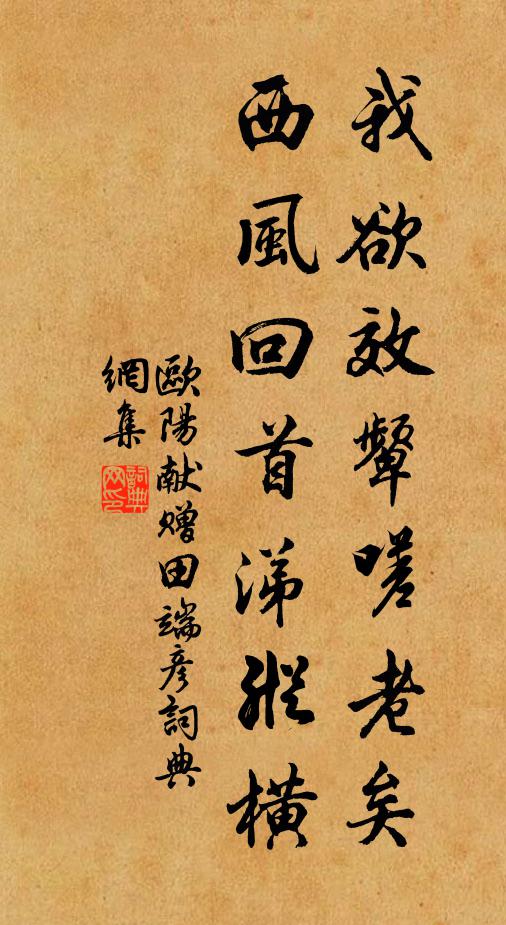 我欲效顰嗟老矣
西風回首涕縱橫
歐陽献贈田端彥詞典
網集
詞典網印